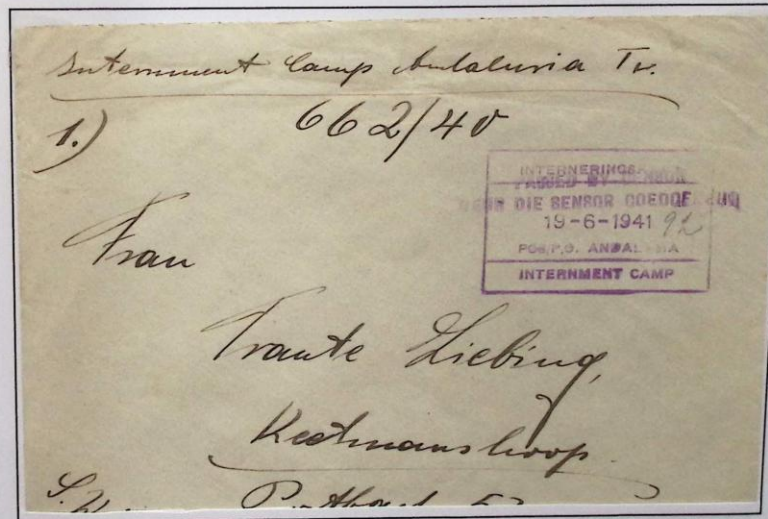 Internment Camp Andalusia Tv.
1.) 662/40
INTERNERINGS
PASSED BY CENSOR
DEUR DIE SENSOR GOEDGE
19-6-1941 92
POS/P.O. ANDAL
INTERNMENT CAMP
Frau
Traute Liebing,
Keetmanshoop.